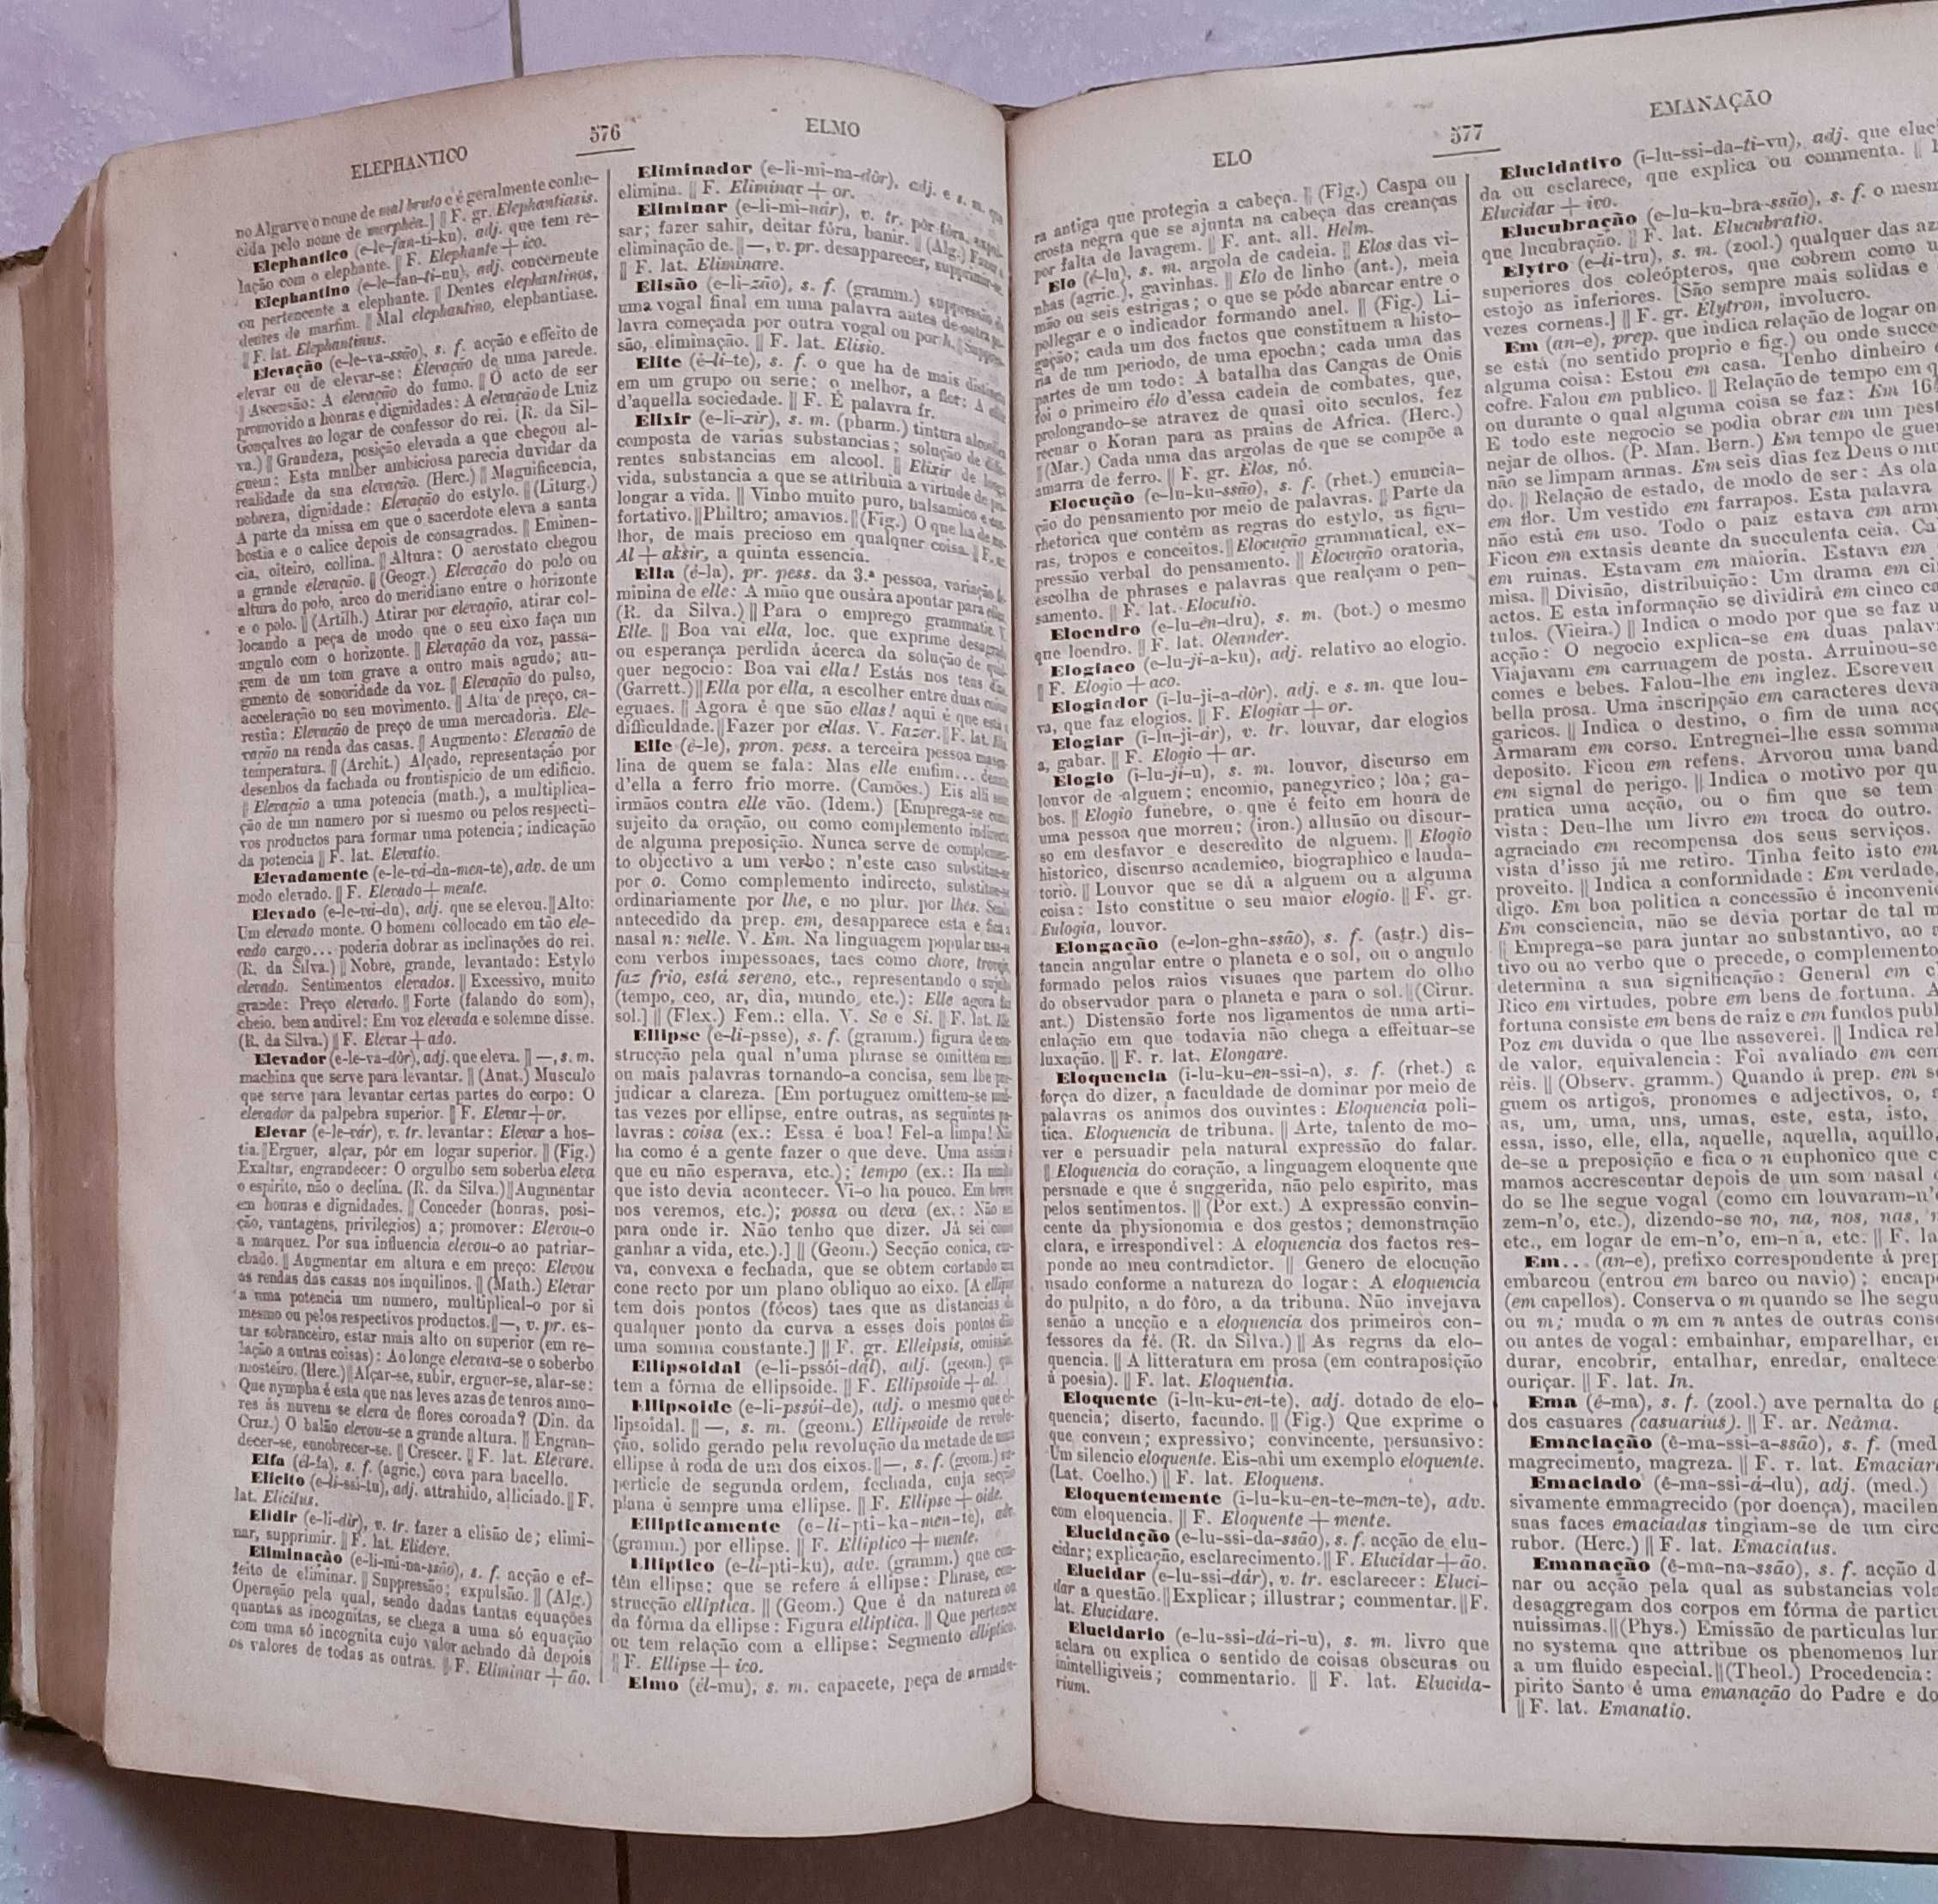 ELEPHANTICO
576
ELMO
no Algarve o nome de mal bruto e é geralmente conhe-
cida pelo nome de morphéa.] || F. gr. Elephantiasis.
Elephantico (e-le-fan-ti-ku), adj. que tem re-
lação com o elephante. || F. Elephante + ico.
Elephantino (e-le-fan-ti-nu), adj. concernente
ou pertencente a elephante. || Dentes elephantinos,
dentes de marfim. || Mal elephantino, elephantiase.
|| F. lat. Elephantinus.
Elevação (e-le-va-ssão), s. f. acção e effeito de
elevar ou de elevar-se: Elevação de uma parede.
|| Ascensão: A elevação do fumo. || O acto de ser
promovido a honras e dignidades: A elevação de Luiz
Gonçalves ao logar de confessor do rei. (R. da Sil-
va.) || Grandeza, posição elevada a que chegou al-
guem: Esta mulher ambiciosa parecia duvidar da
realidade da sua elevação. (Herc.) || Magnificencia,
nobreza, dignidade: Elevação do estylo. || (Liturg.)
A parte da missa em que o sacerdote eleva a santa
hostia e o calice depois de consagrados. || Eminen-
cia, oiteiro, collina. || Altura: O aerostato chegou
a grande elevação. || (Geogr.) Elevação do polo ou
altura do polo, arco do meridiano entre o horizonte
e o polo. || (Artilh.) Atirar por elevação, atirar col-
locando a peça de modo que o seu eixo faça um
angulo com o horizonte. || Elevação da voz, passa-
gem de um tom grave a outro mais agudo; au-
gmento de sonoridade da voz. || Elevação do pulso,
acceleração no seu movimento. || Alta de preço, ca-
restia: Elevação de preço de uma mercadoria. Ele-
vação na renda das casas. || Augmento: Elevação de
temperatura. || (Archit.) Alçado, representação por
desenhos da fachada ou frontispicio de um edificio.
|| Elevação a uma potencia (math.), a multiplica-
ção de um numero por si mesmo ou pelos respecti-
vos productos para formar uma potencia; indicação
da potencia || F. lat. Elevatio.
Elevadamente (e-le-vá-da-men-te), adv. de um
modo elevado. || F. Elevado + mente.
Elevado (e-le-vá-du), adj. que se elevou. || Alto:
Um elevado monte. O homem collocado em tão ele-
vado cargo... poderia dobrar as inclinações do rei.
(R. da Silva.) || Nobre, grande, levantado: Estylo
elevado. Sentimentos elevados. || Excessivo, muito
grande: Preço elevado. || Forte (falando do som),
cheio, bem audivel: Em voz elevada e solemne disse.
(R. da Silva.) || F. Elevar + ado.
Elevador (e-le-va-dôr), adj. que eleva. || —, s. m.
machina que serve para levantar. || (Anat.) Musculo
que serve para levantar certas partes do corpo: O
elevador da palpebra superior. || F. Elevar + or.
Elevar (e-le-vár), v. tr. levantar: Elevar a hos-
tia. || Erguer, alçar, pôr em logar superior. || (Fig.)
Exaltar, engrandecer: O orgulho sem soberba eleva
o espirito, não o declina. (R. da Silva.) || Augmentar
em honras e dignidades. || Conceder (honras, posi-
ção, vantagens, privilegios) a; promover: Elevou-o
a marquez. Por sua influencia elevou-o ao patriar-
chado. || Augmentar em altura e em preço: Elevou
as rendas das casas aos inquilinos. || (Math.) Elevar
a uma potencia um numero, multiplical-o por si
mesmo ou pelos respectivos productos. || —, v. pr. es-
tar sobranceiro, estar mais alto ou superior (em re-
lação a outras coisas): Ao longe elevava-se o soberbo
mosteiro. (Herc.) || Alçar-se, subir, erguer-se, alar-se:
Que nympha é esta que nas leves azas de tenros amo-
res ás nuvens se eleva de flores coroada? (Din. da
Cruz.) O balão elevou-se a grande altura. || Engran-
decer-se, ennobrecer-se. || Crescer. || F. lat. Elevare.
Elfa (él-fa), s. f. (agric.) cova para bacello.
Elicito (e-li-ssi-tu), adj. attrahido, alliciado. || F.
lat. Elicitus.
Elidir (e-li-dir), v. tr. fazer a elisão de; elimi-
nar, supprimir. || F. lat. Elidere.
Eliminação (e-li-mi-na-ssão), s. f. acção e ef-
feito de eliminar. || Suppressão; expulsão. || (Alg.)
Operação pela qual, sendo dadas tantas equações
quantas as incognitas, se chega a uma só equação
com uma só incognita cujo valor achado dá depois
os valores de todas as outras. || F. Eliminar + ão.
Eliminador (e-li-mi-na-dôr), adj. e s. m. que
elimina. || F. Eliminar + or.
Eliminar (e-li-mi-nár), v. tr. pôr fóra, expul-
sar; fazer sahir, deitar fóra, banir. || (Alg.) Fazer a
eliminação de. || —, v. pr. desapparecer, supprimir-se.
|| F. lat. Eliminare.
Elisão (e-li-zão), s. f. (gramm.) suppressão de
uma vogal final em uma palavra antes de outra pa-
lavra começada por outra vogal ou por h. || Suppres-
são, eliminação. || F. lat. Elisio.
Elite (é-li-te), s. f. o que ha de mais distincto
em um grupo ou serie; o melhor, a flor: A elite
d'aquella sociedade. || F. É palavra fr.
Elixir (e-li-xir), s. m. (pharm.) tintura alcoolica
composta de varias substancias; solução de diffe-
rentes substancias em alcool. || Elixir de longa
vida, substancia a que se attribuia a virtude de pro-
longar a vida. || Vinho muito puro, balsamico e con-
fortativo. || Philtro; amavios. || (Fig.) O que ha de me-
lhor, de mais precioso em qualquer coisa. || F. ar.
Al + aksir, a quinta essencia.
Ella (é-la), pr. pess. da 3.ª pessoa, variação fe-
minina de elle: A mão que ousára apontar para ella.
(R. da Silva.) || Para o emprego grammatic. V.
Elle. || Boa vai ella, loc. que exprime desagrado
ou esperança perdida ácerca da solução de qual-
quer negocio: Boa vai ella! Estás nos teus dias.
(Garrett.) || Ella por ella, a escolher entre duas coisas
eguaes. || Agora é que são ellas! aqui é que está a
difficuldade. || Fazer por ellas. V. Fazer. || F. lat. Illa.
Elle (ê-le), pron. pess. a terceira pessoa mascu-
lina de quem se fala: Mas elle emfim... deante
d'ella a ferro frio morre. (Camões.) Eis alli seus
irmãos contra elle vão. (Idem.) [Emprega-se como
sujeito da oração, ou como complemento indirecto
de alguma preposição. Nunca serve de complemen-
to objectivo a um verbo; n'este caso substitue-se
por o. Como complemento indirecto, substitue-se
ordinariamente por lhe, e no plur. por lhes. Sendo
antecedido da prep. em, desapparece esta e fica a
nasal n: nelle. V. Em. Na linguagem popular usa-se
com verbos impessoaes, taes como chore, troveja,
faz frio, está sereno, etc., representando o sujeito
(tempo, ceo, ar, dia, mundo, etc.): Elle agora faz
sol.] || (Flex.) Fem.: ella. V. Se e Si. || F. lat. Ille.
Ellipse (e-li-psse), s. f. (gramm.) figura de con-
strucção pela qual n'uma phrase se omittem uma
ou mais palavras tornando-a concisa, sem lhe pre-
judicar a clareza. [Em portuguez omittem-se mui-
tas vezes por ellipse, entre outras, as seguintes pa-
lavras: coisa (ex.: Essa é boa! Fel-a limpa! Não
ha como é a gente fazer o que deve. Uma assim é
que eu não esperava, etc.); tempo (ex.: Ha muito
que isto devia acontecer. Vi-o ha pouco. Em breve
nos veremos, etc.); possa ou deva (ex.: Não sei
para onde ir. Não tenho que dizer. Já sei como
ganhar a vida, etc.).] || (Geom.) Secção conica, cur-
va, convexa e fechada, que se obtem cortando um
cone recto por um plano obliquo ao eixo. [A ellipse
tem dois pontos (fócos) taes que as distancias de
qualquer ponto da curva a esses dois pontos dão
uma somma constante.] || F. gr. Elleipsis, omissão.
Ellipsoidal (e-li-pssói-dál), adj. (geom.) que
tem a fórma de ellipsoide. || F. Ellipsoide + al.
Ellipsoide (e-li-pssói-de), adj. o mesmo que el-
lipsoidal. || —, s. m. (geom.) Ellipsoide de revolu-
ção, solido gerado pela revolução da metade de uma
ellipse á roda de um dos eixos. || —, s. f. (geom.) su-
perficie de segunda ordem, fechada, cuja secção
plana é sempre uma ellipse. || F. Ellipse + oide.
Ellipticamente (e-li-pti-ka-men-te), adv.
(gramm.) por ellipse. || F. Elliptico + mente.
Elliptico (e-li-pti-ku), adv. (gramm.) que con-
têm ellipse; que se refere á ellipse: Phrase, con-
strucção elliptica. || (Geom.) Que é da natureza ou
da fórma da ellipse: Figura elliptica. || Que pertence
ou tem relação com a ellipse: Segmento elliptico.
|| F. Ellipse + ico.
Elmo (él-mu), s. m. capacete, peça de armadu-
ELO
577
EMANAÇÃO
ra antiga que protegia a cabeça. || (Fig.) Caspa ou
crosta negra que se ajunta na cabeça das creanças
por falta de lavagem. || F. ant. all. Helm.
Elo (é-lu), s. m. argola de cadeia. || Elos das vi-
nhas (agric.), gavinhas. || Elo de linho (ant.), meia
mão ou seis estrigas; o que se póde abarcar entre o
pollegar e o indicador formando anel. || (Fig.) Li-
gação; cada um dos factos que constituem a histo-
ria de um periodo, de uma epocha; cada uma das
partes de um todo: A batalha das Cangas de Onis
foi o primeiro élo d'essa cadeia de combates, que,
prolongando-se atravez de quasi oito seculos, fez
recuar o Koran para as praias de Africa. (Herc.)
|| (Mar.) Cada uma das argolas de que se compõe a
amarra de ferro. || F. gr. Elos, nó.
Elocução (e-lu-ku-ssão), s. f. (rhet.) enuncia-
ção do pensamento por meio de palavras. || Parte da
rhetorica que contêm as regras do estylo, as figu-
ras, tropos e conceitos. || Elocução grammatical, ex-
pressão verbal do pensamento. || Elocução oratoria,
escolha de phrases e palavras que realçam o pen-
samento. || F. lat. Elocutio.
Eloendro (e-lu-en-dru), s. m. (bot.) o mesmo
que loendro. || F. lat. Oleander.
Elogiaco (e-lu-ji-a-ku), adj. relativo ao elogio.
|| F. Elogio + aco.
Elogiador (i-lu-ji-a-dôr), adj. e s. m. que lou-
va, que faz elogios. || F. Elogiar + or.
Elogiar (i-lu-ji-ár), v. tr. louvar, dar elogios
a, gabar. || F. Elogio + ar.
Elogio (i-lu-ji-u), s. m. louvor, discurso em
louvor de alguem; encomio, panegyrico; lôa; ga-
bos. || Elogio funebre, o que é feito em honra de
uma pessoa que morreu; (iron.) allusão ou discur-
so em desfavor e descredito de alguem. || Elogio
historico, discurso academico, biographico e lauda-
torio. || Louvor que se dá a alguem ou a alguma
coisa: Isto constitue o seu maior elogio. || F. gr.
Eulogia, louvor.
Elongação (e-lon-gha-ssão), s. f. (astr.) dis-
tancia angular entre o planeta e o sol, ou o angulo
formado pelos raios visuaes que partem do olho
do observador para o planeta e para o sol. || (Cirur.
ant.) Distensão forte nos ligamentos de uma arti-
culação em que todavia não chega a effeituar-se
luxação. || F. r. lat. Elongare.
Eloquencia (i-lu-ku-en-ssi-a), s. f. (rhet.) a
força do dizer, a faculdade de dominar por meio de
palavras os animos dos ouvintes: Eloquencia poli-
tica. Eloquencia de tribuna. || Arte, talento de mo-
ver e persuadir pela natural expressão do falar.
|| Eloquencia do coração, a linguagem eloquente que
persuade e que é suggerida, não pelo espirito, mas
pelos sentimentos. || (Por ext.) A expressão convin-
cente da physionomia e dos gestos; demonstração
clara, e irrespondivel: A eloquencia dos factos res-
ponde ao meu contradictor. || Genero de elocução
usado conforme a natureza do logar: A eloquencia
do pulpito, a do fôro, a da tribuna. Não invejava
senão a uncção e a eloquencia dos primeiros con-
fessores da fé. (R. da Silva.) || As regras da elo-
quencia. || A litteratura em prosa (em contraposição
á poesia). || F. lat. Eloquentia.
Eloquente (i-lu-ku-en-te), adj. dotado de elo-
quencia; diserto, facundo. || (Fig.) Que exprime o
que convem; expressivo; convincente, persuasivo:
Um silencio eloquente. Eis-abi um exemplo eloquente.
(Lat. Coelho.) || F. lat. Eloquens.
Eloquentemente (i-lu-ku-en-te-men-te), adv.
com eloquencia. || F. Eloquente + mente.
Elucidação (e-lu-ssi-da-ssão), s. f. acção de elu-
cidar; explicação, esclarecimento. || F. Elucidar + ão.
Elucidar (e-lu-ssi-dár), v. tr. esclarecer: Eluci-
dar a questão. || Explicar; illustrar; commentar. || F.
lat. Elucidare.
Elucidario (e-lu-ssi-dá-ri-u), s. m. livro que
aclara ou explica o sentido de coisas obscuras ou
inintelligiveis; commentario. || F. lat. Elucida-
rium.
Elucidativo (i-lu-ssi-da-ti-vu), adj. que eluci
da ou esclarece, que explica ou commenta. ||
Elucidar + ivo.
Elucubração (e-lu-ku-bra-ssão), s. f. o mesm
que lucubração. || F. lat. Elucubratio.
Elytro (e-li-tru), s. m. (zool.) qualquer das az
superiores dos coleópteros, que cobrem como u
estojo as inferiores. [São sempre mais solidas e
vezes corneas.] || F. gr. Elytron, involucro.
Em (an-e), prep. que indica relação de logar on
se está (no sentido proprio e fig.) ou onde succe
alguma coisa: Estou em casa. Tenho dinheiro
cofre. Falou em publico. || Relação de tempo em q
ou durante o qual alguma coisa se faz: Em 16
E todo este negocio se podia obrar em um pest
nejar de olhos. (P. Man. Bern.) Em tempo de guer
não se limpam armas. Em seis dias fez Deus o mu
do. || Relação de estado, de modo de ser: As ola
em flor. Um vestido em farrapos. Esta palavra
não está em uso. Todo o paiz estava em arm
Ficou em extasis deante da succulenta ceia. Ca
em ruinas. Estavam em maioria. Estava em
misa. || Divisão, distribuição: Um drama em ci
actos. E esta informação se dividirá em cinco ca
tulos. (Vieira.) || Indica o modo por que se faz u
acção: O negocio explica-se em duas palav
Viajavam em carruagem de posta. Arruinou-se
comes e bebes. Falou-lhe em inglez. Escreveu
bella prosa. Uma inscripção em caracteres deva
garicos. || Indica o destino, o fim de uma acç
Armaram em corso. Entreguei-lhe essa somma
deposito. Ficou em refens. Arvorou uma band
em signal de perigo. || Indica o motivo por qu
pratica uma acção, ou o fim que se tem
vista: Deu-lhe um livro em troca do outro.
agraciado em recompensa dos seus serviços.
vista d'isso já me retiro. Tinha feito isto em
proveito. || Indica a conformidade: Em verdade,
digo. Em boa politica a concessão é inconveni
Em consciencia, não se devia portar de tal m
|| Emprega-se para juntar ao substantivo, ao a
tivo ou ao verbo que o precede, o complemento
determina a sua significação: General em c
Rico em virtudes, pobre em bens de fortuna. A
fortuna consiste em bens de raiz e em fundos publ
Poz em duvida o que lhe asseverei. || Indica rel
de valor, equivalencia: Foi avaliado em cem
réis. || (Observ. gramm.) Quando á prep. em se
guem os artigos, pronomes e adjectivos, o, a
as, um, uma, uns, umas, este, esta, isto,
essa, isso, elle, ella, aquelle, aquella, aquillo,
de-se a preposição e fica o n euphonico que c
mamos accrescentar depois de um som nasal
do se lhe segue vogal (como em louvaram-n'o
zem-n'o, etc.), dizendo-se no, na, nos, nas, n
etc., em logar de em-n'o, em-n a, etc. || F. la
Em... (an-e), prefixo correspondente á prep
embarcou (entrou em barco ou navio); encape
(em capellos). Conserva o m quando se lhe segu
ou m; muda o m em n antes de outras conso
ou antes de vogal: embainhar, emparelhar, en
durar, encobrir, entalhar, enredar, enaltece
ouriçar. || F. lat. In.
Ema (é-ma), s. f. (zool.) ave pernalta do g
dos casuares (casuarius). || F. ar. Neâma.
Emaciação (ê-ma-ssi-a-ssão), s. f. (med
magrecimento, magreza. || F. r. lat. Emaciare
Emaciado (ê-ma-ssi-á-du), adj. (med.)
sivamente emmagrecido (por doença), macilen
suas faces emaciadas tingiam-se de um circ
rubor. (Herc.) || F. lat. Emaciatus.
Emanação (ê-ma-na-ssão), s. f. acção d
nar ou acção pela qual as substancias vola
desaggregam dos corpos em fórma de particu
nuissimas. || (Phys.) Emissão de particulas lum
no systema que attribue os phenomenos lum
a um fluido especial. || (Theol.) Procedencia:
pirito Santo é uma emanação do Padre e do
|| F. lat. Emanatio.